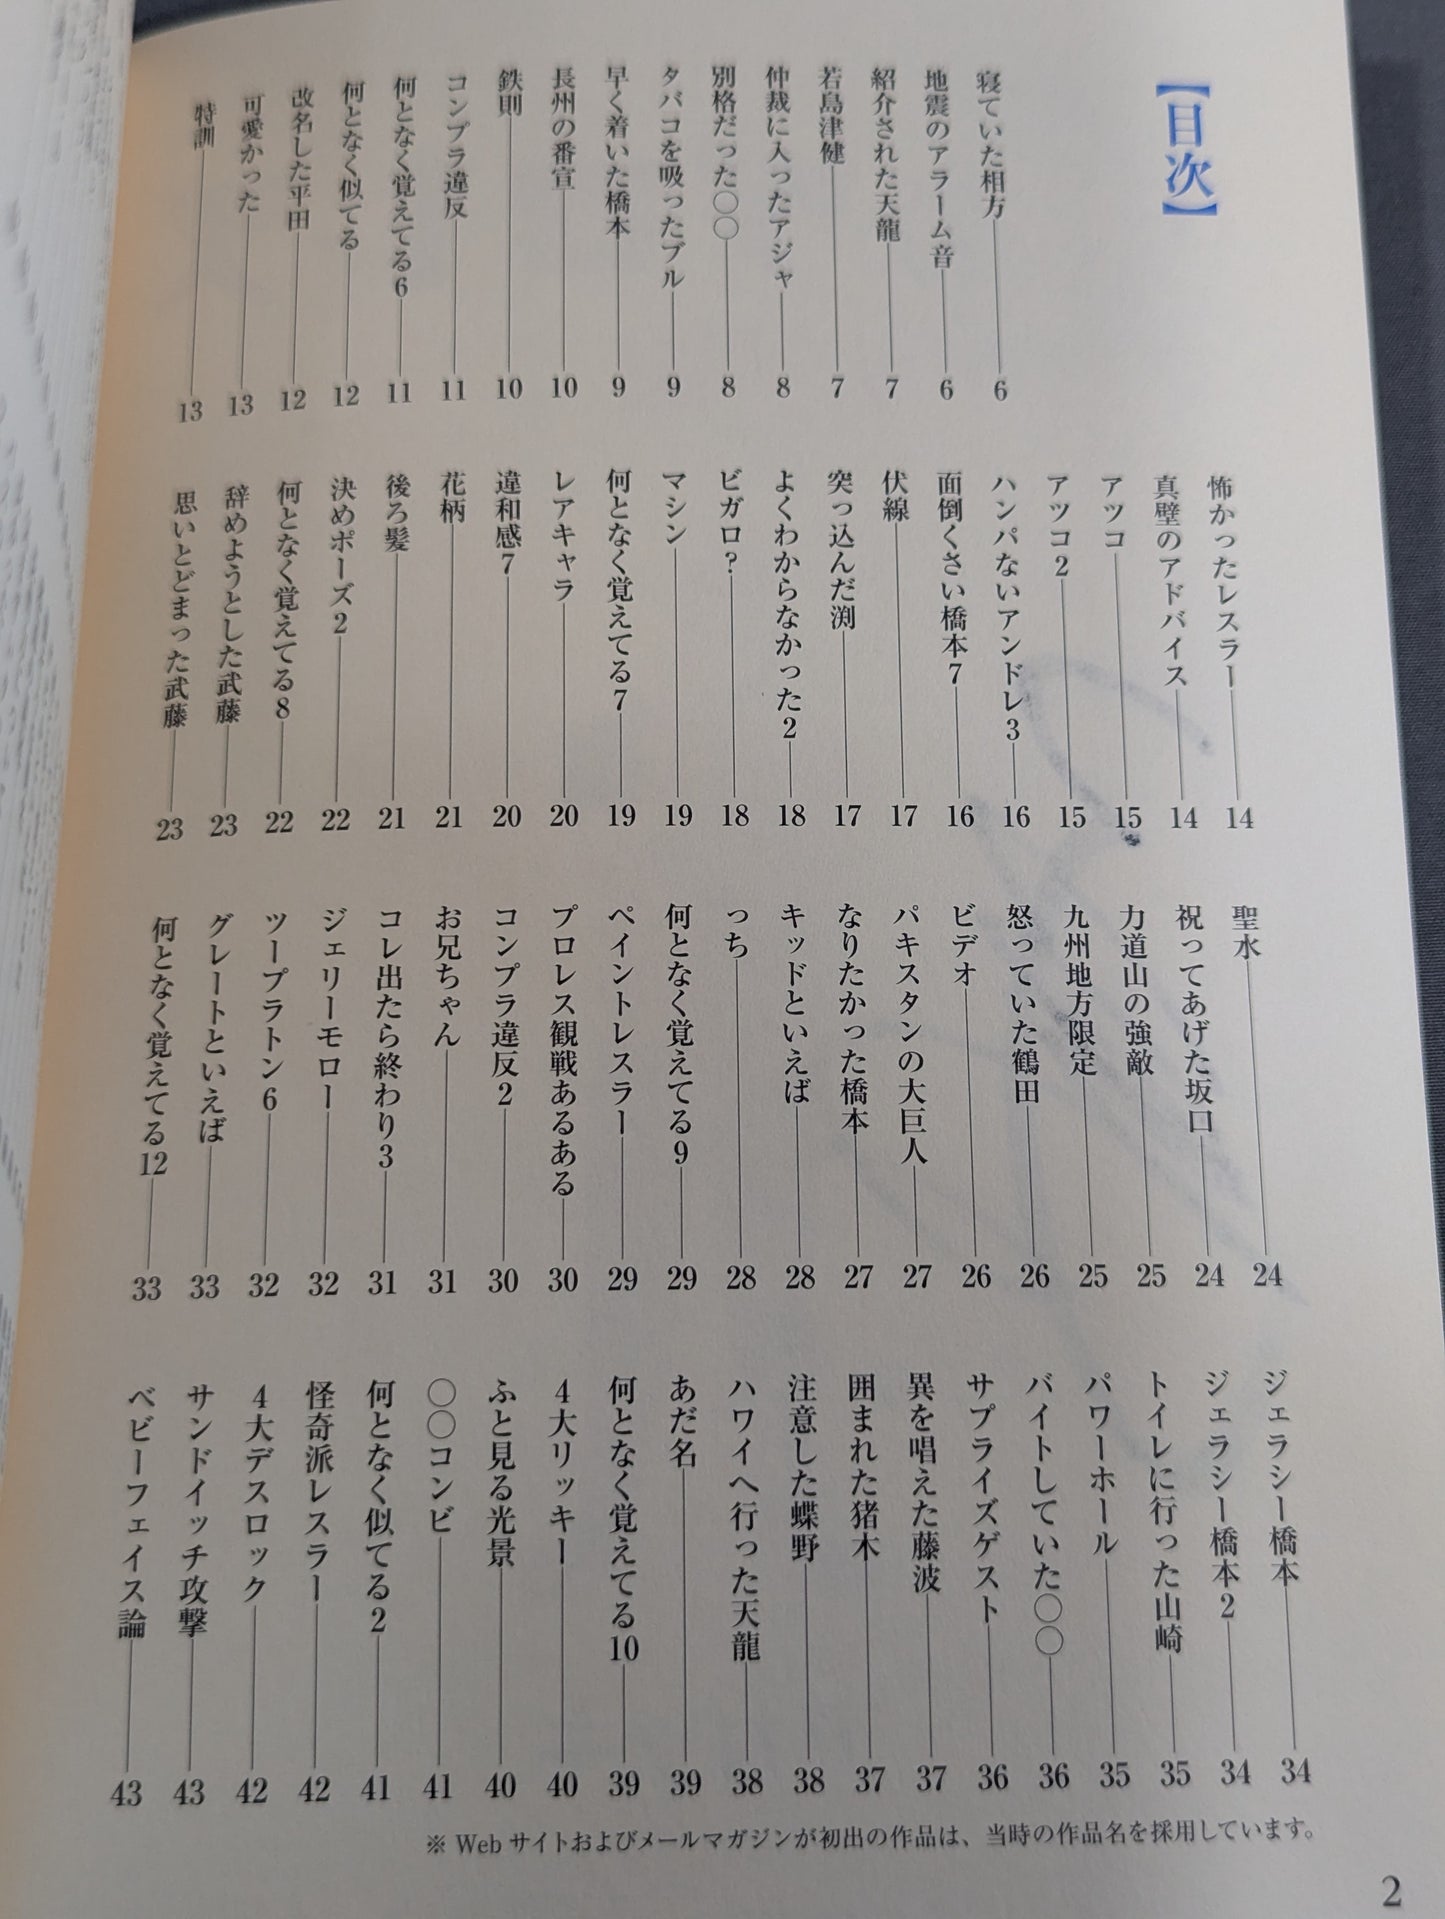 【目次】
寝ていた相方 6
地震のアラーム音 6
紹介された天龍 7
若島津健 7
仲裁に入ったアジャ 8
別格だった〇〇 8
タバコを吸ったブル 9
早く着いた橋本 9
長州の番宣 10
鉄則 10
コンプラ違反 11
何となく覚えてる6 11
何となく似てる 12
改名した平田 12
可愛かった 13
特訓 13
怖かったレスラー 14
真壁のアドバイス 14
アツコ 15
アツコ2 15
ハンパないアンドレ3 16
面倒くさい橋本7 16
伏線 17
突っ込んだ渕 17
よくわからなかった2 18
ビガロ? 18
マシン 19
何となく覚えてる7 19
レアキャラ 20
違和感7 20
花柄 21
後ろ髪 21
決めポーズ2 22
何となく覚えてる8 22
辞めようとした武藤 23
思いとどまった武藤 23
聖水 24
祝ってあげた坂口 24
力道山の強敵 25
九州地方限定 25
怒っていた鶴田 26
ビデオ 26
パキスタンの大巨人 27
なりたかった橋本 27
キッドといえば 28
っち 28
何となく覚えてる9 29
ペイントレスラー 29
プロレス観戦あるある 30
コンプラ違反2 30
お兄ちゃん 31
コレ出たら終わり3 31
ジェリーモロー 32
ツープラトン6 32
グレートといえば 33
何となく覚えてる12 33
ジェラシー橋本 34
ジェラシー橋本2 34
トイレに行った山崎 35
パワーホール 35
バイトしていた〇〇 36
サプライズゲスト 36
異を唱えた藤波 37
囲まれた猪木 37
注意した蝶野 38
ハワイへ行った天龍 38
あだ名 39
何となく覚えてる10 39
4大リッキー 40
ふと見る光景 40
〇〇コンビ 41
何となく似てる2 41
怪奇派レスラー 42
4大デスロック 42
サンドイッチ攻撃 43
ベビーフェイス論 43
※ Webサイトおよびメールマガジンが初出の作品は、当時の作品名を採用しています。
2